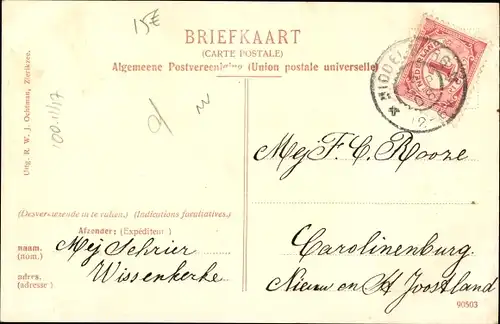 15£
BRIEFKAART
(CARTE POSTALE)
Algemeene Postvereeniging (Union postale universelle)
Uitg. R. W. J. Ochtman, Zierikzee.
100-11/17
Mej F. C. Rooze
(Desverkiezende in te vullen.) (Indications facultatives.)
Afzender: (Expéditeur)
naam. (nom.) Mej Schrier
adres. (adresse) Wissenkerke
Carolinenburg.
Nieuw en St Joostland
90503